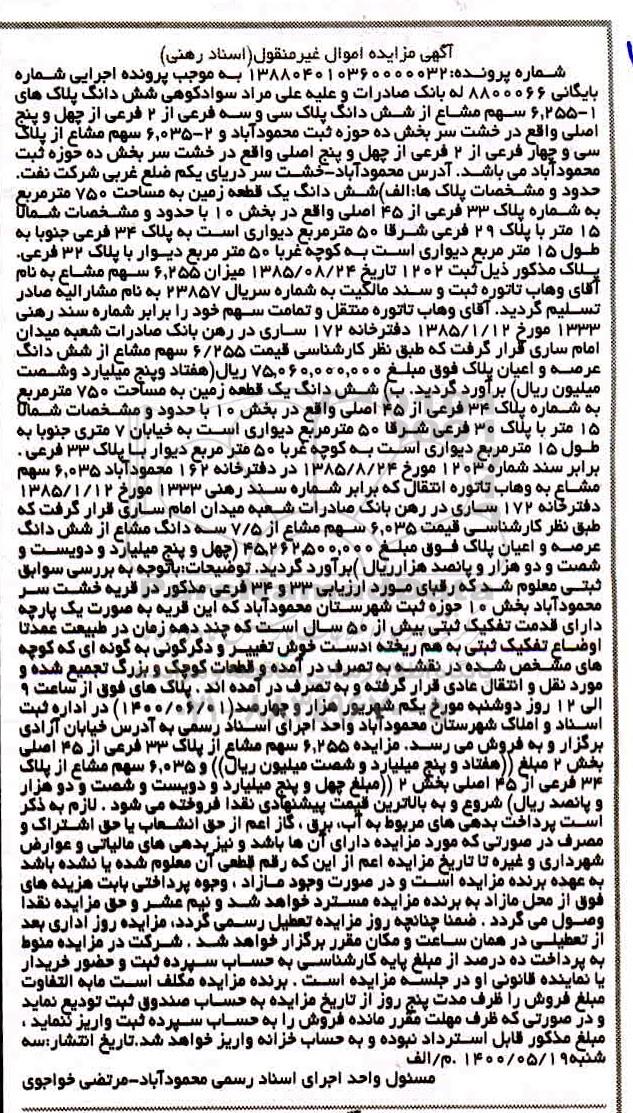 آگهی مزایده اموال غیرمنقول(اسناد رهنی)
شماره پرونده:۱۳۸۸۰۴۰۱۰۳۶۰۰۰۰۰۳۲ به موجب پرونده اجرایی شماره
بایگانی ۸۸۰۰۰۶۶ له بانک صادرات و علیه علی مراد سوادکوهی شش دانگ پلاک های
۱-۶,۲۵۵ سهم مشاع از شش دانگ پلاک سی و سه فرعی از ۲ فرعی از چهل و پنج
اصلی واقع در خشت سر بخش ده حوزه ثبت محمودآباد و ۲-۶,۰۳۵ سهم مشاع از پلاک
سی و چهار فرعی از ۲ فرعی از چهل و پنج اصلی واقع در خشت سر بخش ده حوزه ثبت
محمودآباد می باشد. آدرس محمودآباد-خشت سر دریای یکم ضلع غربی شرکت نفت.
حدود و مشخصات پلاک ها:الف)شش دانگ یک قطعه زمین به مساحت ۷۵۰ مترمربع
به شماره پلاک ۳۳ فرعی از ۴۵ اصلی واقع در بخش ۱۰ با حدود و مشخصات شمالا
۱۵ متر با پلاک ۲۹ فرعی شرقا ۵۰ مترمربع دیواری است به پلاک ۳۴ فرعی جنوبا به
طول ۱۵ متر مربع دیواری است به کوچه غربا ۵۰ متر مربع دیوار با پلاک ۳۲ فرعی.
پلاک مذکور ذیل ثبت ۱۲۰۲ تاریخ ۱۳۸۵/۰۸/۲۴ میزان ۶,۲۵۵ سهم مشاع به نام
آقای وهاب تاتوره ثبت و سند مالکیت به شماره سریال ۲۳۸۵۷ به نام مشارالیه صادر
تسلیم گردید. آقای وهاب تاتوره منتقل و تمامت سهم خود را برابر شماره سند رهنی
۱۳۳۳ مورخ ۱۳۸۵/۱/۱۲ دفترخانه ۱۷۲ ساری در رهن بانک صادرات شعبه میدان
امام ساری قرار گرفت که طبق نظر کارشناسی قیمت ۶/۲۵۵ سهم مشاع از شش دانگ
عرصه و اعیان پلاک فوق مبلغ ۷۵,۰۶۰,۰۰۰,۰۰۰ ریال(هفتاد وپنج میلیارد وشصت
میلیون ریال) برآورد گردید. ب) شش دانگ یک قطعه زمین به مساحت ۷۵۰ مترمربع
به شماره پلاک ۳۴ فرعی از ۴۵ اصلی واقع در بخش ۱۰ با حدود و مشخصات شمالا
۱۵ متر با پلاک ۳۰ فرعی شرقا ۵۰ مترمربع دیواری است به خیابان ۷ متری جنوبا به
طول ۱۵ مترمربع دیواری است به کوچه غربا ۵۰ متر مربع دیوار با پلاک ۳۳ فرعی .
برابر سند شماره ۱۲۰۳ مورخ ۱۳۸۵/۸/۲۴ در دفترخانه ۱۶۲ محمودآباد ۶,۰۳۵ سهم
مشاع به وهاب تاتوره انتقال که برابر شماره سند رهنی ۱۳۳۳ مورخ ۱۳۸۵/۱/۱۲
دفترخانه ۱۷۲ ساری در رهن بانک صادرات شعبه میدان امام ساری قرار گرفت که
طبق نظر کارشناسی قیمت ۶,۰۳۵ سهم مشاع از ۷/۵ سه دانگ مشاع از شش دانگ
عرصه و اعیان پلاک فوق مبلغ ۴۵,۲۶۲,۵۰۰,۰۰۰ (چهل و پنج میلیارد و دویست و
شصت و دو هزار و پانصد هزارریال )برآورد گردید. توضیحات:باتوجه به بررسی سوابق
ثبتی معلوم شد که رقبای مورد ارزیابی ۳۳ و ۳۴ فرعی مذکور در قریه خشت سر
محمودآباد بخش ۱۰ حوزه ثبت شهرستان محمودآباد که این قریه به صورت یک پارچه
دارای قدمت تفکیک ثبتی بیش از ۵۰ سال است که چند دهه زمان در طبیعت عمدتا
اوضاع تفکیک ثبتی به هم ریخته ;دست خوش تغییر و دگرگونی به گونه ای که کوچه
های مشخص شده در نقشه به تصرف در آمده و قطعات کوچک و بزرگ تجمیع شده و
مورد نقل و انتقال عادی قرار گرفته و به تصرف در آمده اند . پلاک های فوق از ساعت ۹
الی ۱۲ روز دوشنبه مورخ یکم شهریور هزار و چهارصد(۱۴۰۰/۰۶/۰۱) در اداره ثبت
اسناد و املاک شهرستان محمودآباد واحد اجرای اسناد رسمی به آدرس خیابان آزادی
برگزار و به فروش می رسد. مزایده ۶,۲۵۵ سهم مشاع از پلاک ۳۳ فرعی از ۴۵ اصلی
بخش ۲ مبلغ ((هفتاد و پنج میلیارد و شصت میلیون ریال)) و ۶,۰۳۵ سهم مشاع از پلاک
۳۴ فرعی از ۴۵ اصلی بخش ۲ ((مبلغ چهل و پنج میلیارد و دویست و شصت و دو هزار
و پانصد ریال) شروع و به بالاترین قیمت پیشنهادی نقدا فروخته می شود . لازم به ذکر
است پرداخت بدهی های مربوط به آب، برق ، گاز اعم از حق انشعاب یا حق اشتراک و
مصرف در صورتی که مورد مزایده دارای آن ها باشد و نیز بدهی های مالیاتی و عوارض
شهرداری و غیره تا تاریخ مزایده اعم از این که رقم قطعی آن معلوم شده یا نشده باشد
به عهده برنده مزایده است و در صورت وجود مازاد ، وجوه پرداختی بابت هزینه های
فوق از محل مازاد به برنده مزایده مسترد خواهد شد و نیم عشر و حق مزایده نقدا
وصول می گردد . ضمنا چنانچه روز مزایده تعطیل رسمی گردد، مزایده روز اداری بعد
از تعطیلی در همان ساعت و مکان مقرر برگزار خواهد شد . شرکت در مزایده منوط
به پرداخت ده درصد از مبلغ پایه کارشناسی به حساب سپرده ثبت و حضور خریدار
یا نماینده قانونی او در جلسه مزایده است . برنده مزایده مکلف است مابه التفاوت
مبلغ فروش را ظرف مدت پنج روز از تاریخ مزایده به حساب صندوق ثبت تودیع نماید
و در صورتی که ظرف مهلت مقرر مانده فروش را به حساب سپرده ثبت واریز ننماید ،
مبلغ مذکور قابل استرداد نبوده و به حساب خزانه واریز خواهد شد.تاریخ انتشار:سه
شنبه۱۴۰۰/۰۵/۱۹ .م/الف
مسئول واحد اجرای اسناد رسمی محمودآباد-مرتضی خواجوی